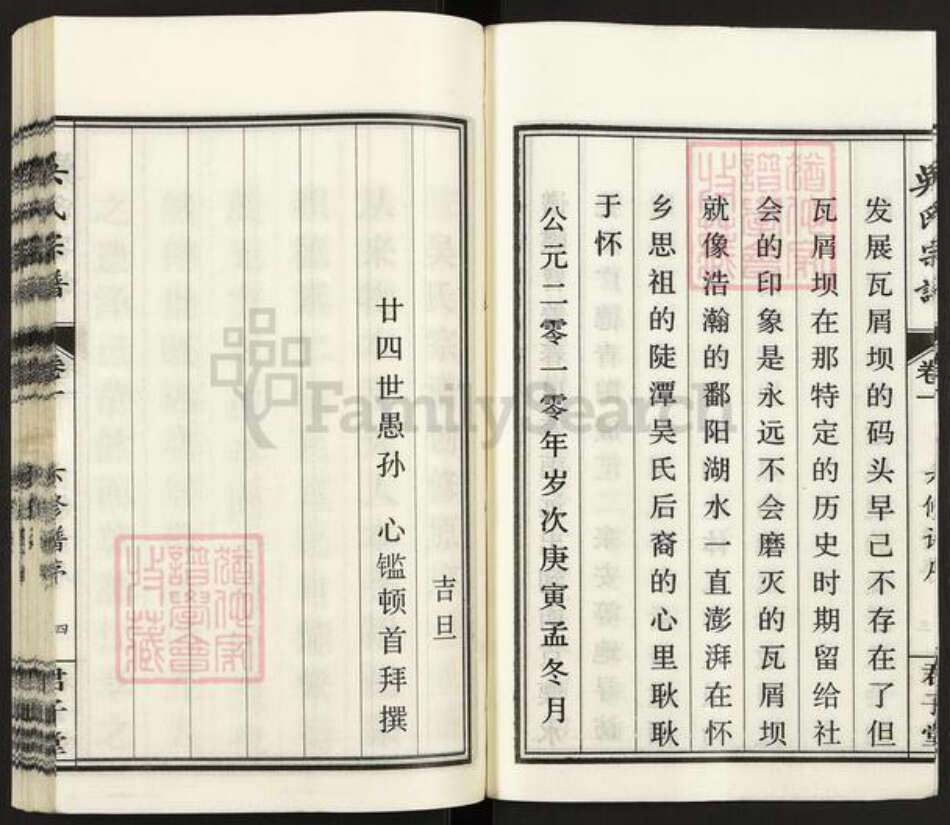 吴氏宗谱
卷一
六修谱序
君子堂
发展瓦屑坝的码头早已不存在了但
瓦屑坝在那特定的历史时期留给社
会的印象是永远不会磨灭的瓦屑坝
就像浩瀚的鄱阳湖水一直澎湃在怀
乡思祖的陡潭吴氏后裔的心里耿耿
于怀
公元二零一零年岁次庚寅孟冬月
吉旦
廿四世愚孙 心鑑顿首拜撰
吴氏宗谱
卷一
六修谱序
四
君子堂
FamilySearch